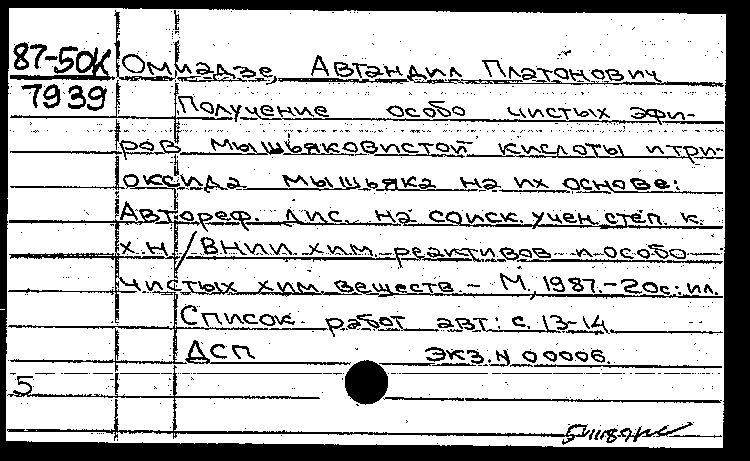 87-50К Омиадзе Автандил Платонович
7939 Получение особо чистых эфи-
ров мышьяковистой кислоты и три-
оксида мышьяка на их основе:
Автореф. дис. на соиск. учен. степ. к.
х.н. / ВНИИ хим. реактивов и особо
чистых хим. веществ - М., 1987.-20с.: ил.
Список работ авт.: с. 13-14.
ДСП ЭКЗ. N 00006.
5